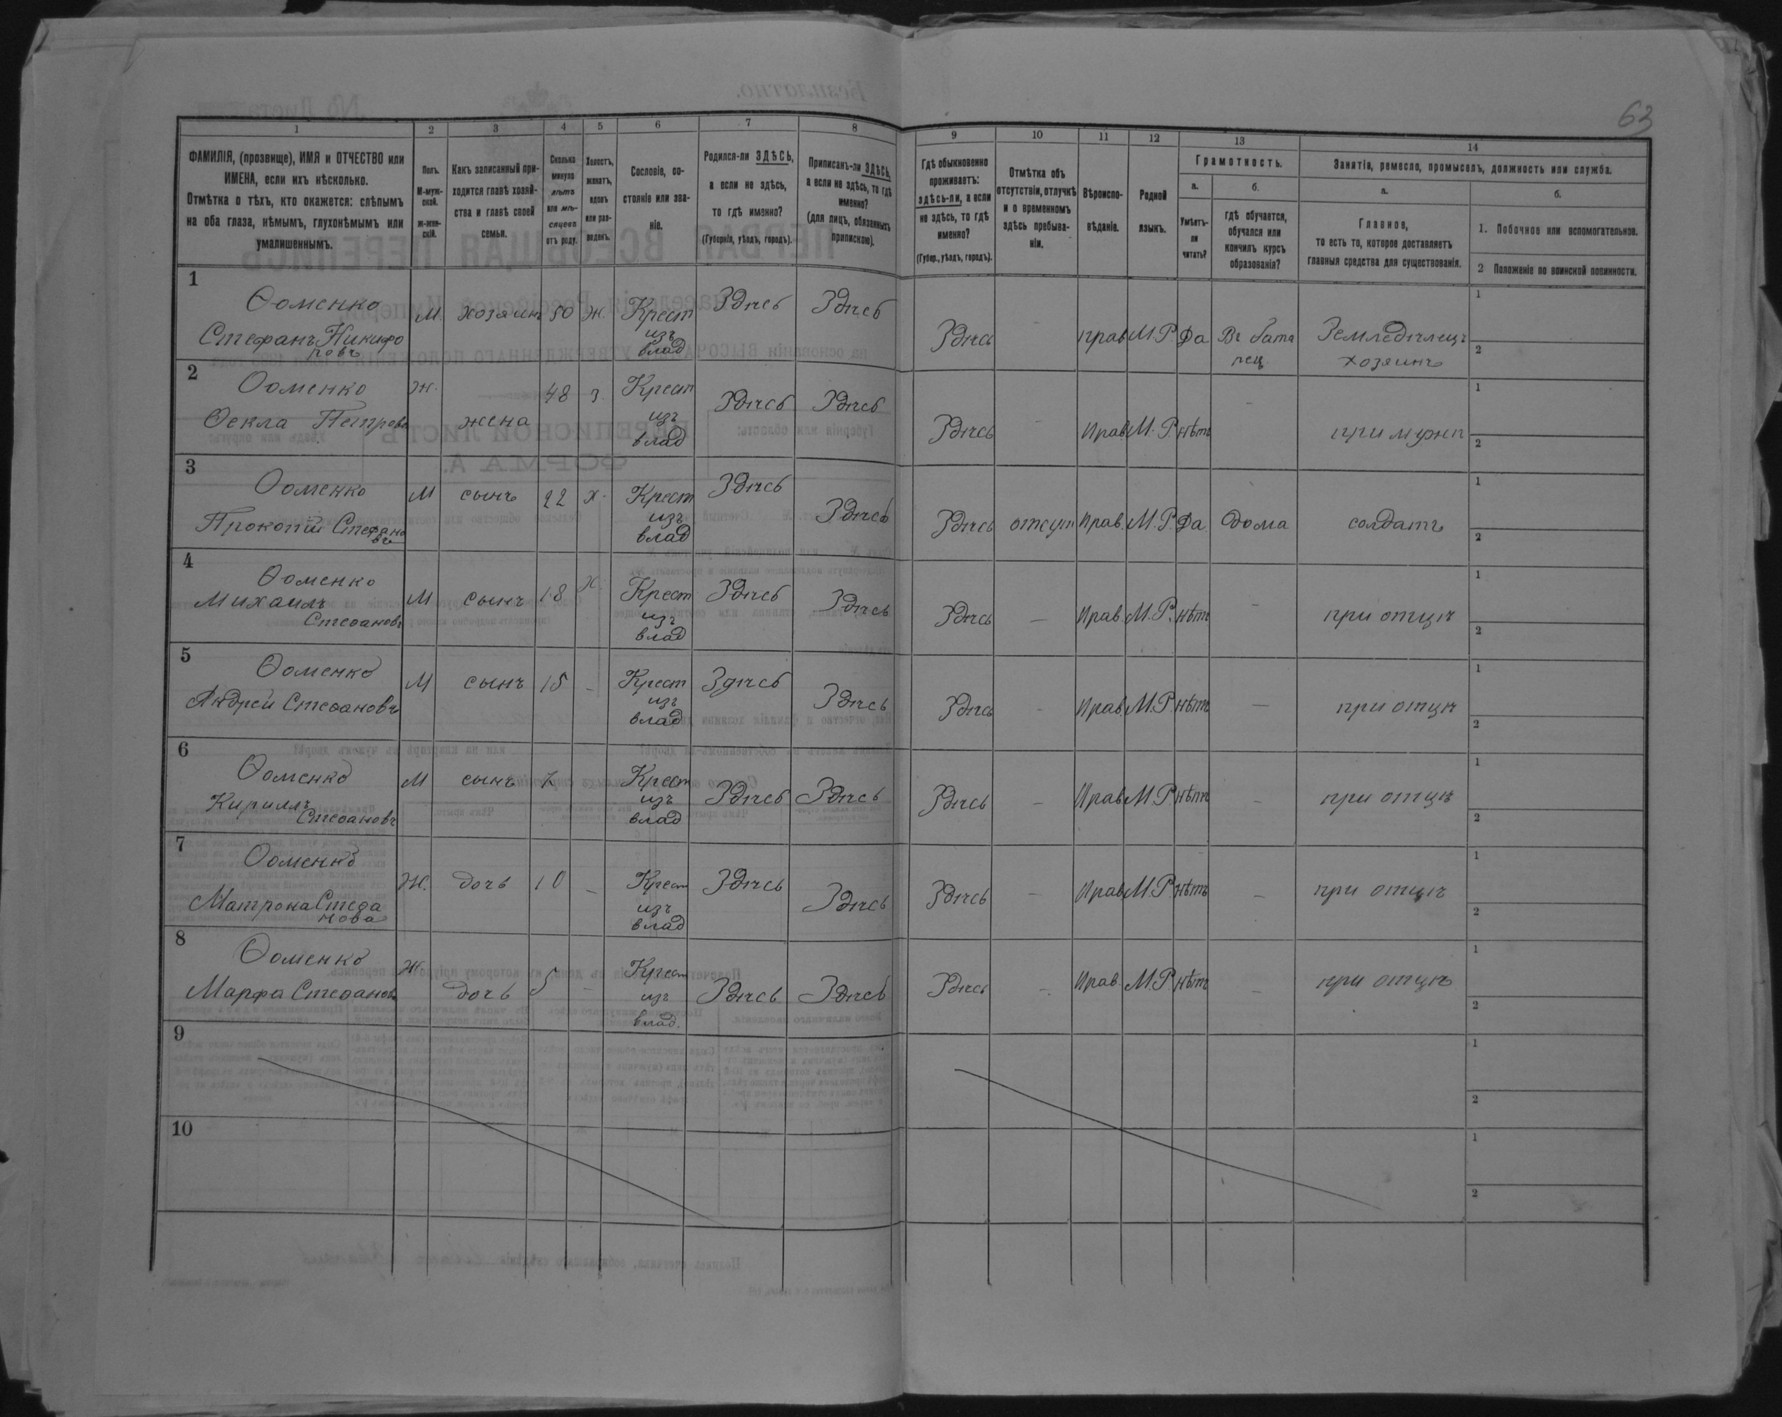 63
1 2 3 4 5 6 7 8 9 10 11 12 13 14
ФАМИЛІЯ, (прозвище), ИМЯ и ОТЧЕСТВО или
ИМЕНА, если ихъ нѣсколько.
Отмѣтка о тѣхъ, кто окажется: слѣпымъ
на оба глаза, нѣмымъ, глухонѣмымъ или
умалишеннымъ.
Полъ.
М-муж-
ской.
ж-жен-
скій.
Какъ записанный при-
ходится главѣ хозяй-
ства и главѣ своей
семьи.
Сколько
минуло
лѣтъ
или мѣ-
сяцевъ
отъ роду.
Холостъ,
женатъ,
вдовъ
или раз-
веденъ.
Сословіе, со-
стояніе или зва-
ніе.
Родился-ли ЗДѢСЬ,
а если не здѣсь,
то гдѣ именно?
(Губернія, уѣздъ, городъ).
Приписанъ-ли ЗДѢСЬ,
а если не здѣсь, то гдѣ
именно?
(для лицъ, обязанныхъ
припискою).
Гдѣ обыкновенно
проживаетъ:
здѣсь-ли, а если
не здѣсь, то гдѣ
именно?
(Губер., уѣздъ, городъ).
Отмѣтка объ
отсутствіи, отлучкѣ
и о временномъ
здѣсь пребыва-
ніи.
Вѣроиспо-
вѣданіе.
Родной
языкъ.
Грамотность.
а.
Умѣетъ-
ли
читать?
б.
гдѣ обучается,
обучался или
кончилъ курсъ
образованія?
Занятія, ремесло, промыселъ, должность или служба.
а.
Главное,
то есть то, которое доставляетъ
главныя средства для существованія.
б.
1. Побочное или вспомогательное.
2 Положеніе по воинской повинности.
1
Ѳоменко
Стефанъ Никифо
ровъ
М. хозяинъ 50 Ж. Крест
изъ
влад
Здѣсь Здѣсь Здѣсь - прав М.Р. Да
Земледѣлецъ
хозяинъ
1
2
2
Ѳоменко
Ѳекла Петрова
Ж. жена 48 З Крест
изъ
влад
Здѣсь Здѣсь Здѣсь - Прав М.Р нѣтъ - при мужѣ
1
2
3
Ѳоменко
Прокопій Стефано
въ
М сынъ 22 х. Крест
изъ
влад
Здѣсь Здѣсь Здѣсь отсут Прав. М.Р. Да дома солдатъ
1
2
4
Ѳоменко
Михаилъ
Стеѳановъ
М сынъ 18 Х. Крест
изъ
влад
Здѣсь Здѣсь Здѣсь - Прав. М.Р. нѣтъ - при отцѣ
1
2
5
Ѳоменко
Андрей Стеѳановъ
М сынъ 15 - Крест
изъ
влад
Здѣсь Здѣсь Здѣсь - Прав М.Р нѣтъ - при отцѣ
1
2
6
Ѳоменко
Кириллъ
Стеѳановъ
М сынъ Крест
изъ
влад
Здѣсь Здѣсь Здѣсь - Прав М.Р нѣтъ - при отцѣ
1
2
7
Ѳоменко
Матрона Стеѳа
нова
Ж. дочь 10 - Крест
изъ
влад
Здѣсь Здѣсь Здѣсь - Прав М.Р нѣтъ - при отцѣ
1
2
8
Ѳоменко
Марфа Стеѳанов
Ж. дочь 5 - Крест
изъ
влад.
Здѣсь Здѣсь Здѣсь - Прав. М.Р нѣтъ - при отцѣ
1
2
9
1
2
10
1
2